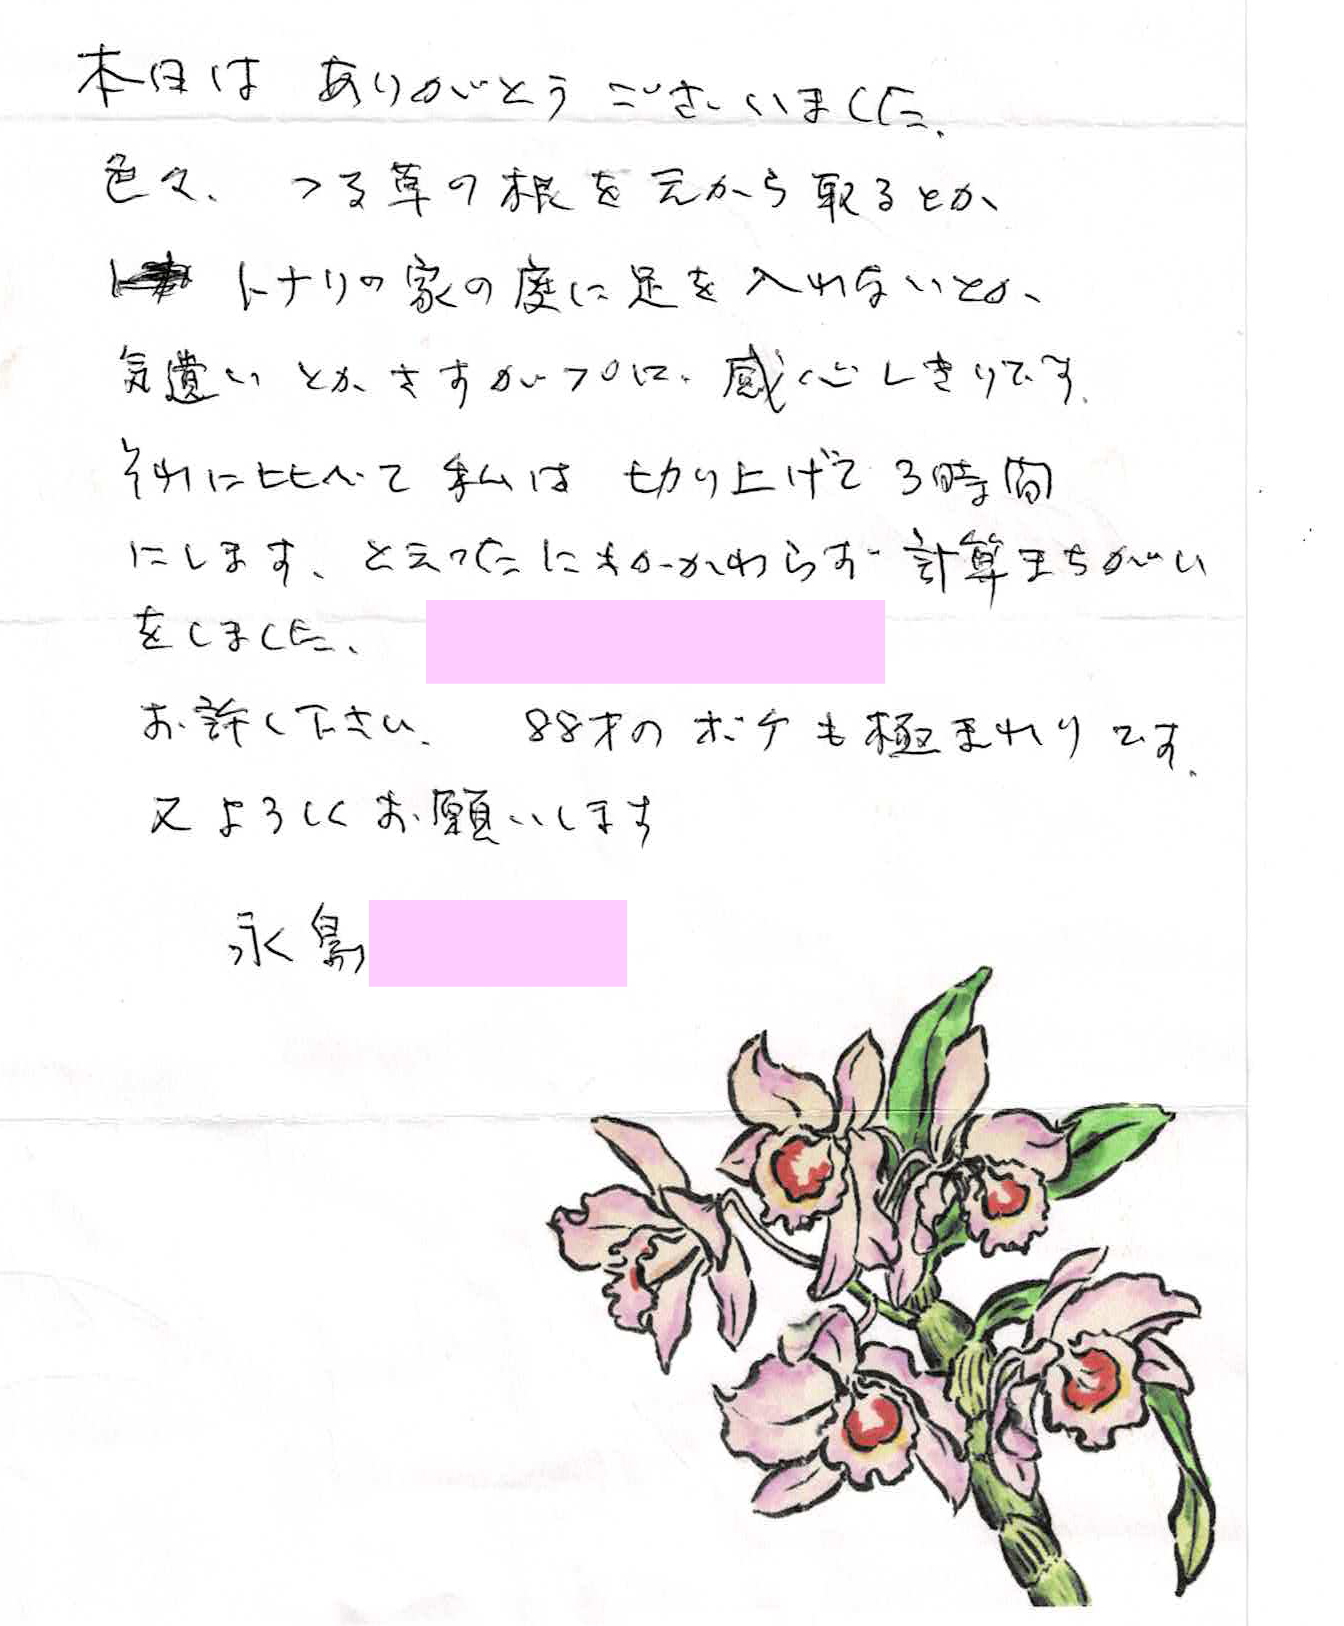 本日は ありがとうございました.
色々、つる草の根を元から取るとか、
トナリの家の庭に足を入れないとか、
気遣いとか さすがプロに、感心しきりです.
それに比べて私は 切り上げて3時間
にします、と云ったにもかかわらず 計算まちがい
をしました、
お許し下さい. 88才のボケも極まれりです.
又よろしくお願いします
永島